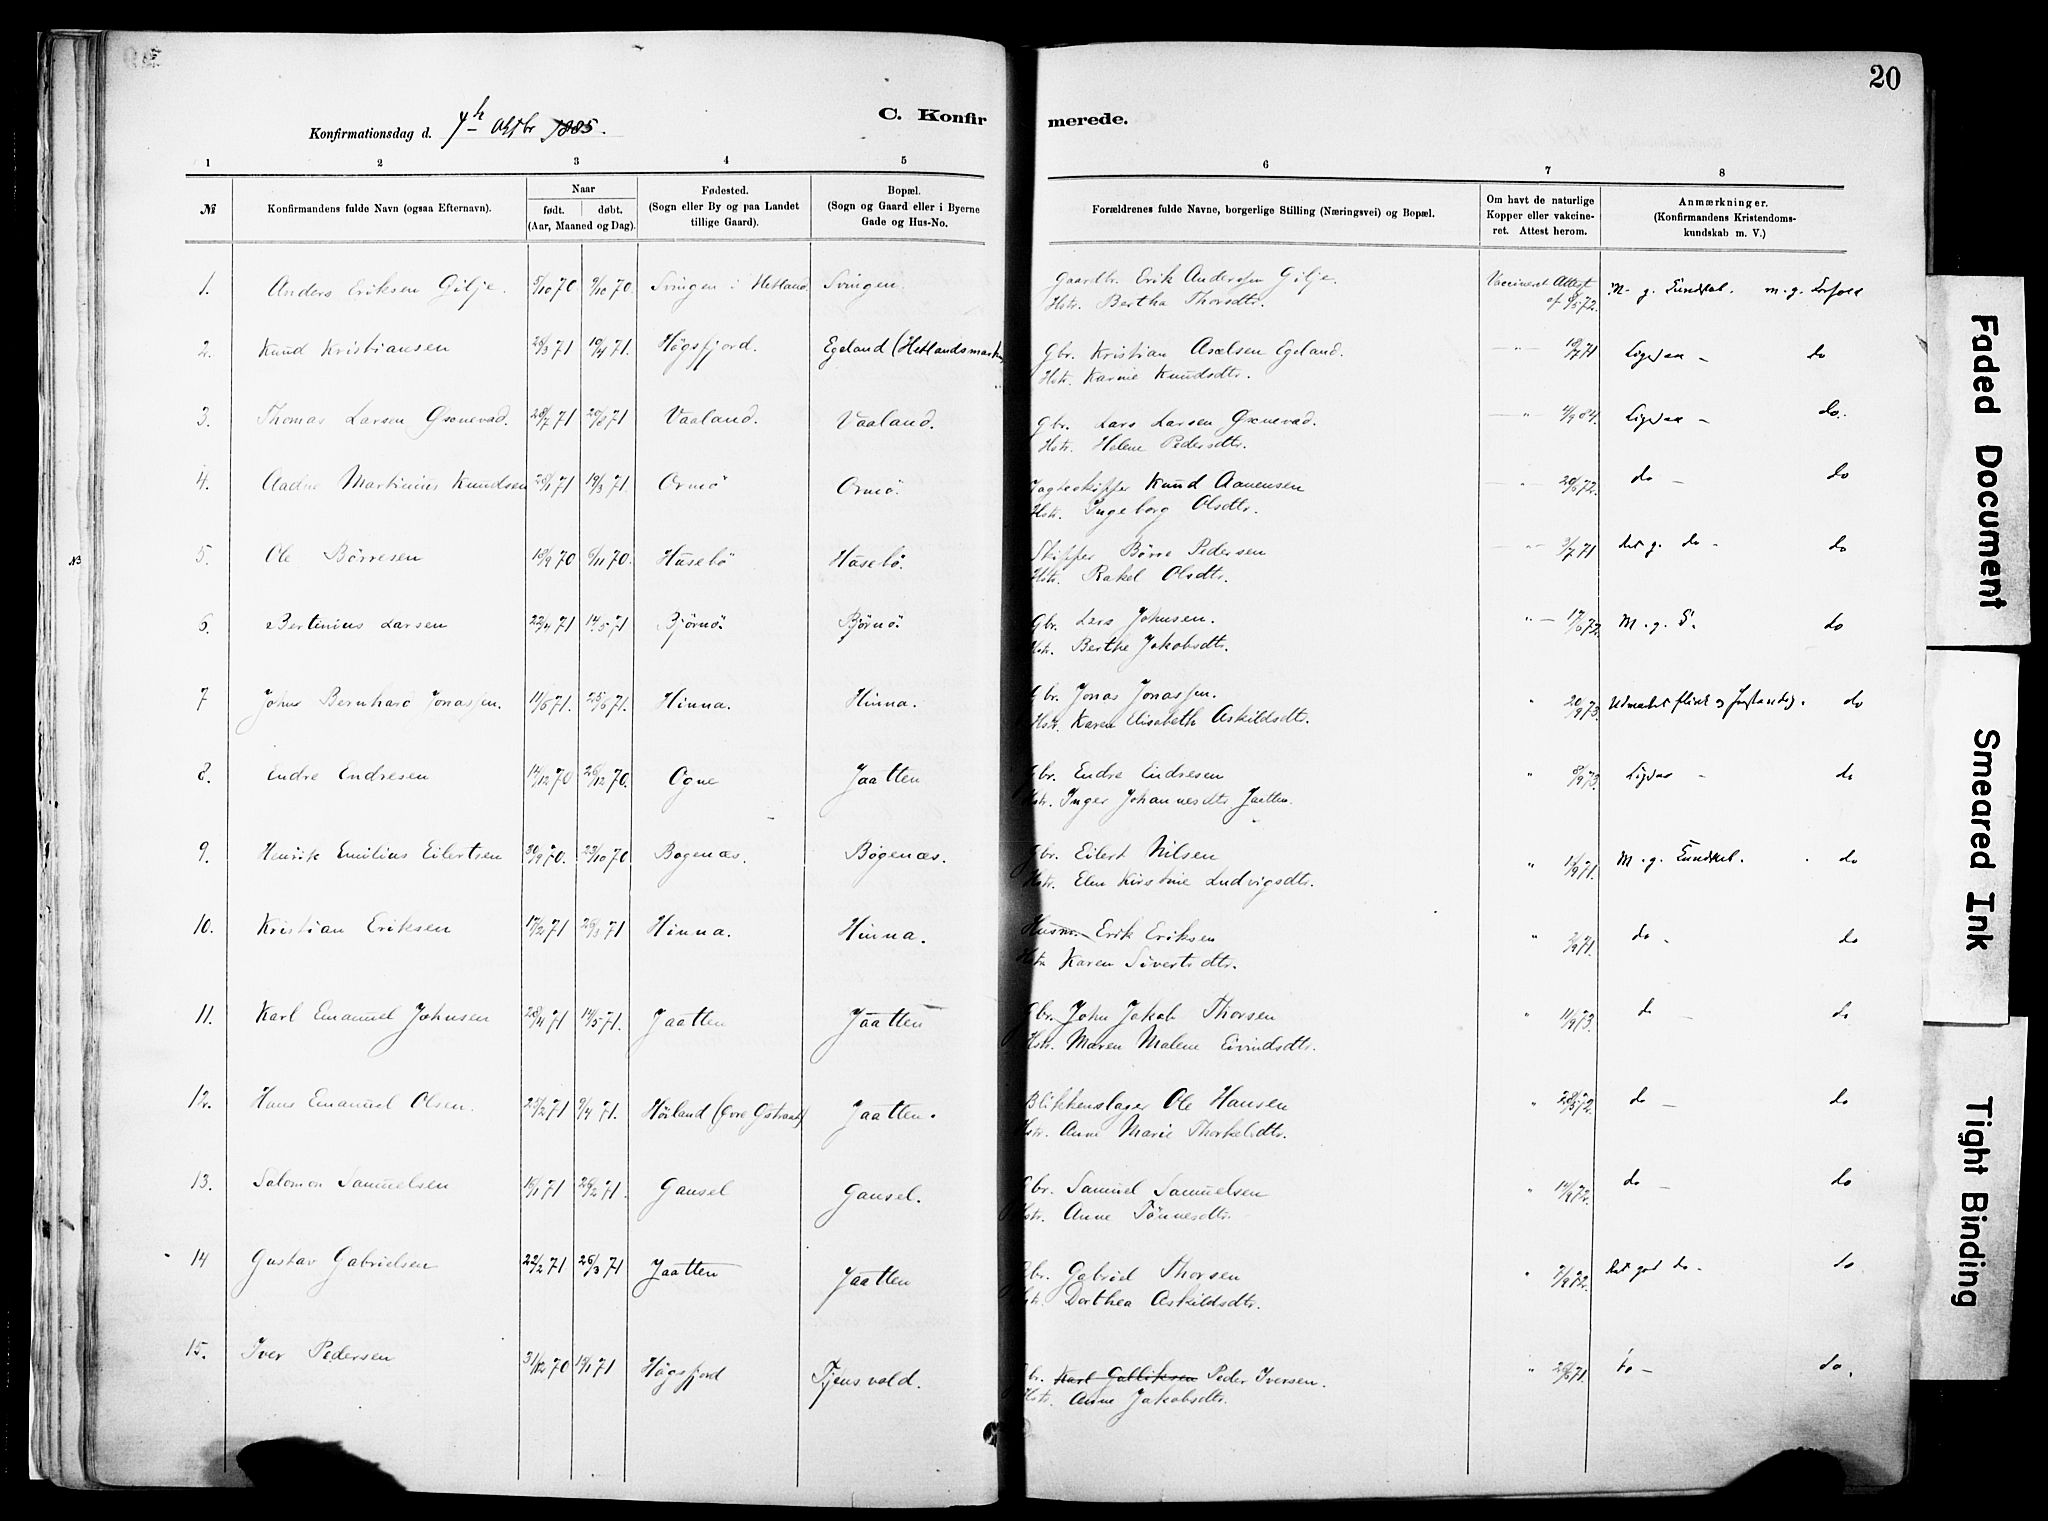 20
C. Konfirmerede.
Konfirmationsdag d. 4h Oktbr 1885.
1 2 3 4 5 6 7 8
№ Konfirmandens fulde Navn (ogsaa Efternavn). Naar født. døbt. (Aar, Maaned og Dag). Fødested. (Sogn eller By og paa Landet tillige Gaard). Bopæl. (Sogn og Gaard eller i Byerne Gade og Hus-No. Forældrenes fulde Navne, borgerlige Stilling (Næringsvei) og Bopæl. Om havt de naturlige Kopper eller vakcineret. Attest herom. Anmærkninger. (Konfirmandens Kristendomskundskab m. V.)
1. Anders Eriksen Gilje. 5/10 70 9/10 70. Svingen i Hetland Svingen. Gaardbr. Erik Andersen Gilje. Vaccineret Attest
Hstr. Bertha Thorsdtr. af
2. Knud Kristiansen 25/3 71 10/4 71. Høgsfjord. Egeland (Hetlandsmarken Gbr. Kristian Axelsen Egeland. 71 Ligesaa - do
Hstr. Karine Knudsdtr.
3. Thomas Larsen Gxnevad. 28/7 71 20/8 71 Vaaland. Vaaland. Gbr. Lars Larsen Gxnevad. 84. Ligesaa - do.
Hstr. Helene Pedersdtr.
4. Aadne Martinius Knudsen 71 19/3 71. Ormö Ormö. Jagteskipper Knud Aanensen 72. do - do
Hstr. Ingeborg Olsdtr.
5. Ole Börresen 70 6/11 70. Husebö Husebö. Skipper Börre Pedersen 71 do - do
Hstr. Rakel Olsdtr.
6. Bertinius Larsen 22/4 71 14/5 71 Bjørnö. Bjørnö. Gbr. Lars Johnsen. 72. M. g. do
Hstr. Berthe Jakobsdtr.
7 Johns Bernhard Jonassen. 71. 25/6 71. Hinna. Hinna. Gbr. Jonas Jonassen. 20/9 73. do
Hstr. Karen Elisabeth Askildsdtr.
8. Endre Endresen 14/12 70 26/12 70. Ogne Jaatten Gbr. Endre Endresen 8/9 73. Ligesaa - do
Hstr. Inger Johannesdtr Jaatten.
9. Henrik Emilius Eilertsen 30/9 70. 23/10 70 Bøgenæs. Bøgenæs. Gbr. Eilert Nilsen 71. M. g. Kundskab. do
Hstr. Elen Kirstine Ludvigsdtr.
10. Kristian Eriksen 71 26/3 71 Hinna. Hinna. Husm. Erik Eriksen 71. do - do
Hstr Karen Sivertsdtr.
11. Karl Emanuel Johnsen 28/4 71 14/5 71. Jaatten Jaatten Gbr. John Jakob Thorsen 11/9 73. do - do
Hstr. Maren Malene Eivindsdtr.
12. Hans Emanuel Olsen. 25/2 71 9/4 71. Hörland Jaatten. Blikkenslager Ole Hansen 28/5 72. do - do
Hstr. Anne Marie Thorkelsdtr.
13. Salomon Samuelsen 71 26/2 71. Gansel Gansel. Gbr. Samuel Samuelsen 72. do - do
Hstr. Anne Tönnesdtr.
14 Gustav Gabrielsen 22/2 71 26/3 71 Jaatten Jaatten Gbr. Gabriel Thorsen 72. Ret god do - do
Hstr. Dorthea Askildsdtr.
15. Iver Pedersen 31/12 70 71 Høgsfjord Tjensvold. Gbr. Karl Gulliksen Peder Iversen. 71. do - do.
Hstr. Anne Jakobsdtr.
Faded Document
Smeared Ink
Tight Binding